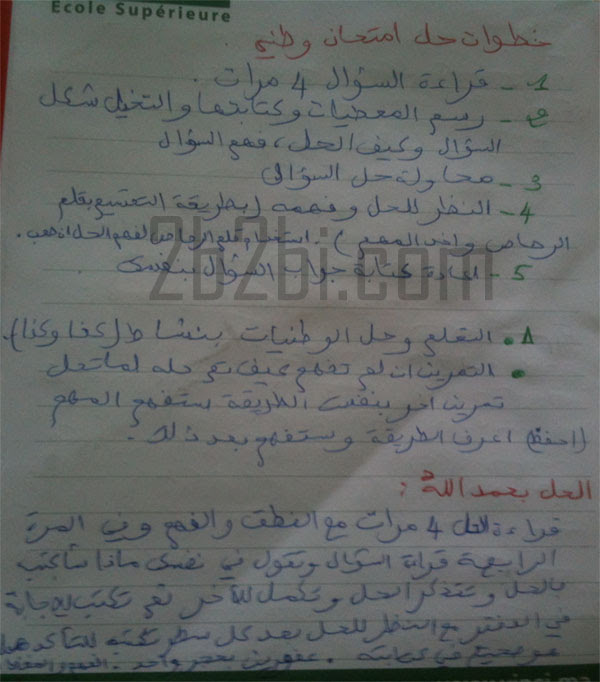 Ecole Supérieure
خطوات حل امتحان وطني
1- قراءة السؤال 4 مرات.
2- رسم المعطيات وكتابتها والتخيل شكل
السؤال وكيف الحل، فهم السؤال
3- محاولة حل السؤال
4- النظر للحل وفهمه (بطريقة التتبع بقلم
الرصاص واخد المهم). استخدام قلم الرصاص لفهم الحل
5- اعادة كتابة جواب السؤال بنفسي
2b2bi.com
وحل الوطنيات بنشاط (كدا وكدا).
التمرين ان لم تفهم كيف تم حله لما تحل
تمرين اخر بنفس الطريقة ستفهم المهم
(احفظ) اعرف الطريقة وستفهم بعد ذلك.
الحل بحمد الله:
قراءة الحل 4 مرات مع النطق والفهم وفي المرة
الرابعة قراءة السؤال وتقول في نفسك ماذا سأكتب
بالحل وتتذكر الحل وتكمل للآخر تم تكتب الاجابة
في الدفتر مع النظر للحل بعد كل سطر تكتبه للتأكد هل
هو صحيح في كتابته. عصفورين بحجر واحد. الفهم والحفظ